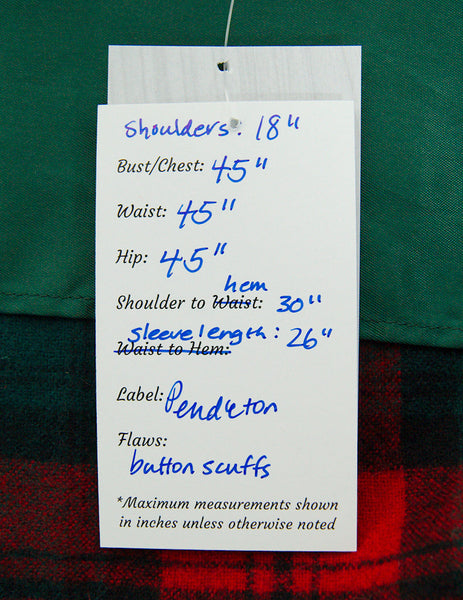 Shoulders: 18"
Bust/Chest: 45"
Waist: 45"
Hip: 45"
hem
Shoulder to Waist: 30"
sleeve length: 26"
Waist to Hem:
Label: Pendleton
Flaws:
button scuffs
*Maximum measurements shown
in inches unless otherwise noted